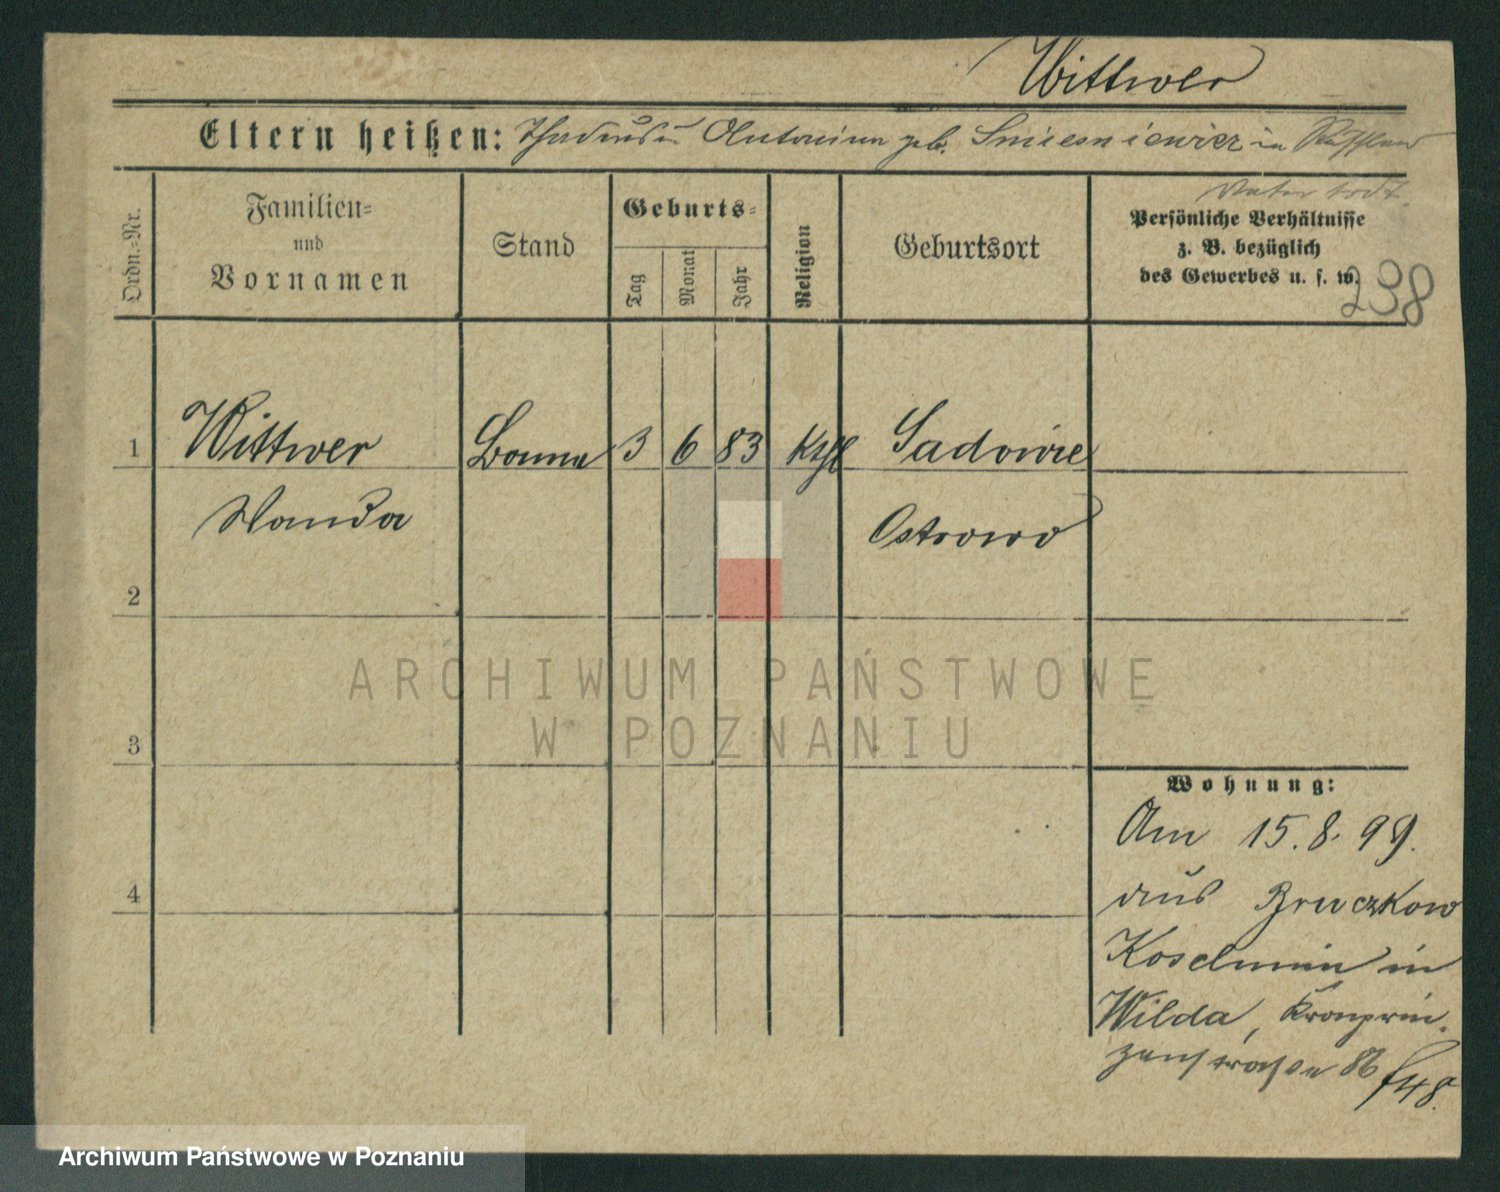 Wittwer
Eltern heißen: Thadeus u. Antonina geb. in
Vater todt.
Ordn.=Nr.
Familien= und Vornamen
Stand
Geburts=
Tag
Monat
Jahr
Religion
Geburtsort
Persönliche Verhältnisse
z. B. bezüglich
des Gewerbes u. s. w.
238
1 Wittwer Bonna 3 6 83 Kthl Sadowie
Wanda Ostrowo
2
3
4
ARCHIWUM PAŃSTWOWE
W POZNANIU
Wohnung:
Am 15.8.99.
aus Bruczkow
Koschmin in
Wilda, Kronprin-
zenstraße 86
Archiwum Państwowe w Poznaniu